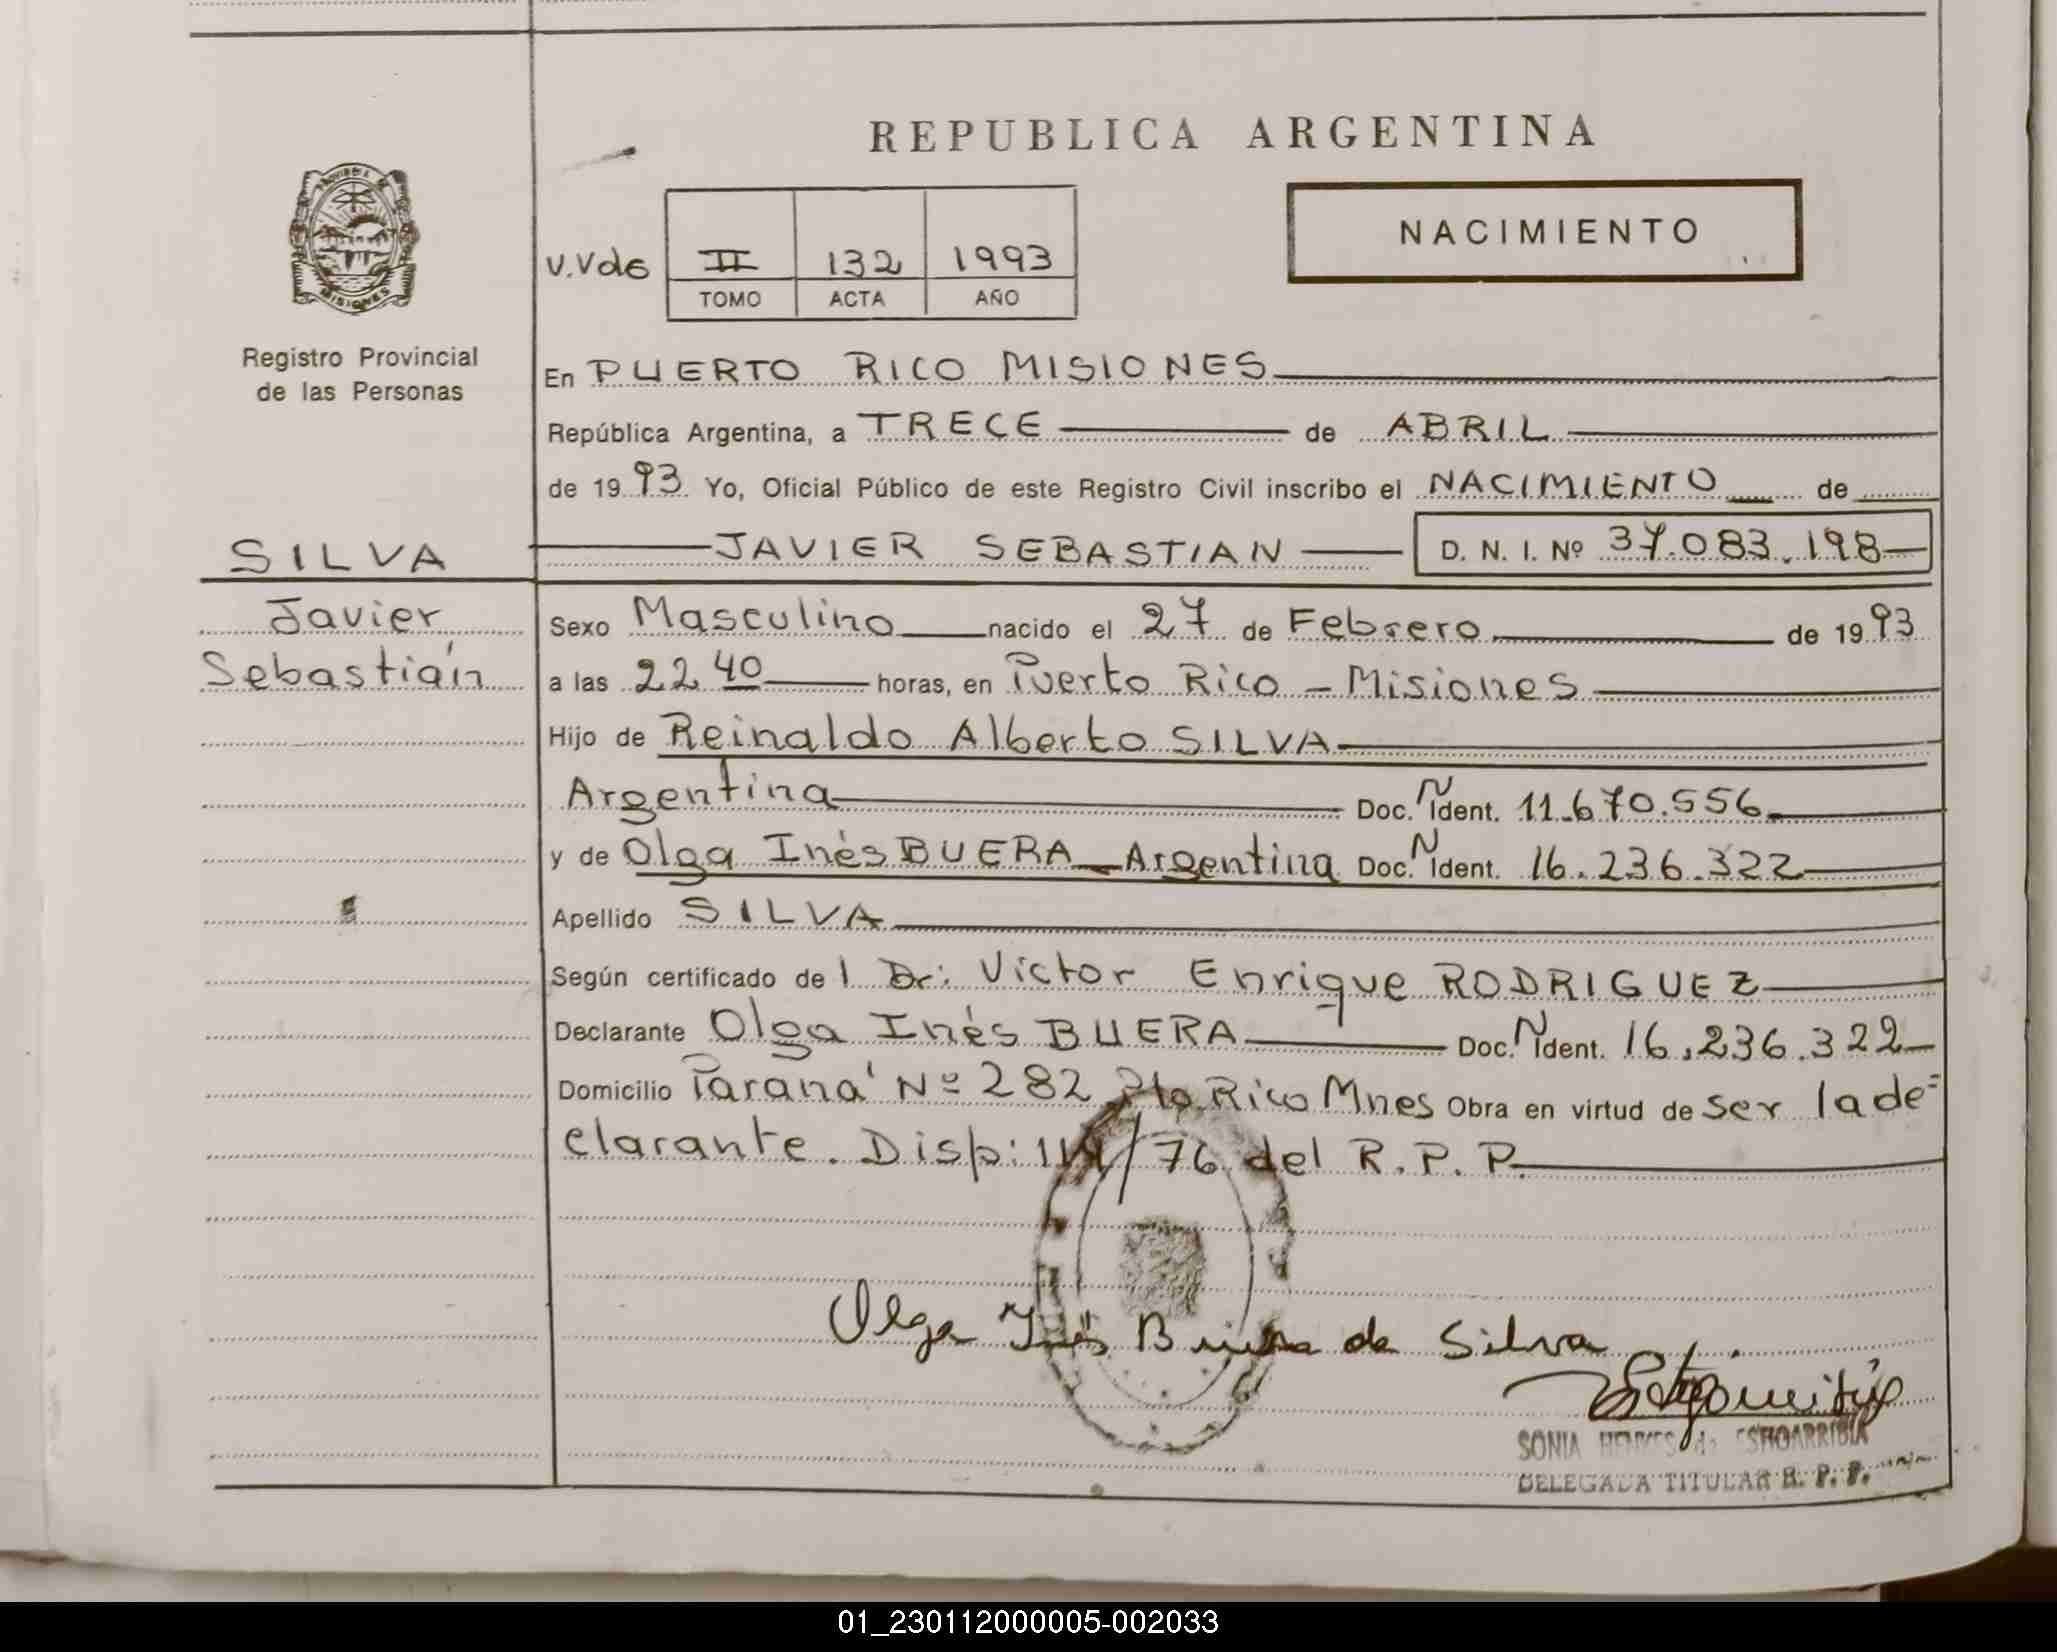 REPUBLICA ARGENTINA
NACIMIENTO
V.Vde II 132 1993
TOMO ACTA AÑO
PROVINCIA DE MISIONES
Registro Provincial
de las Personas
En PUERTO RICO MISIONES
República Argentina, a TRECE de ABRIL
de 1993 Yo, Oficial Público de este Registro Civil inscribo el NACIMIENTO de
SILVA
JAVIER SEBASTIAN D. N. I. Nº 37.083.198
Javier
Sebastián
Sexo Masculino nacido el 27 de Febrero de 1993
a las 22 40 horas, en Puerto Rico - Misiones
Hijo de Reinaldo Alberto SILVA
Argentina Doc. N Ident. 11.670.556
y de Olga Inés BUERA Argentina Doc. N Ident. 16.236.322
Apellido SILVA
Según certificado de l Dr: Victor Enrique RODRIGUEZ
Declarante Olga Inés BUERA Doc. N Ident. 16.236.322
Domicilio Paraná Nº 282 Pto Rico Mnes Obra en virtud de ser la de=
clarante. Disp: /76 del R.P.P.
Olga Inés Buera de Silva
SONIA HENKES de
DELEGADA TITULAR R. P. P.
01_230112000005-002033